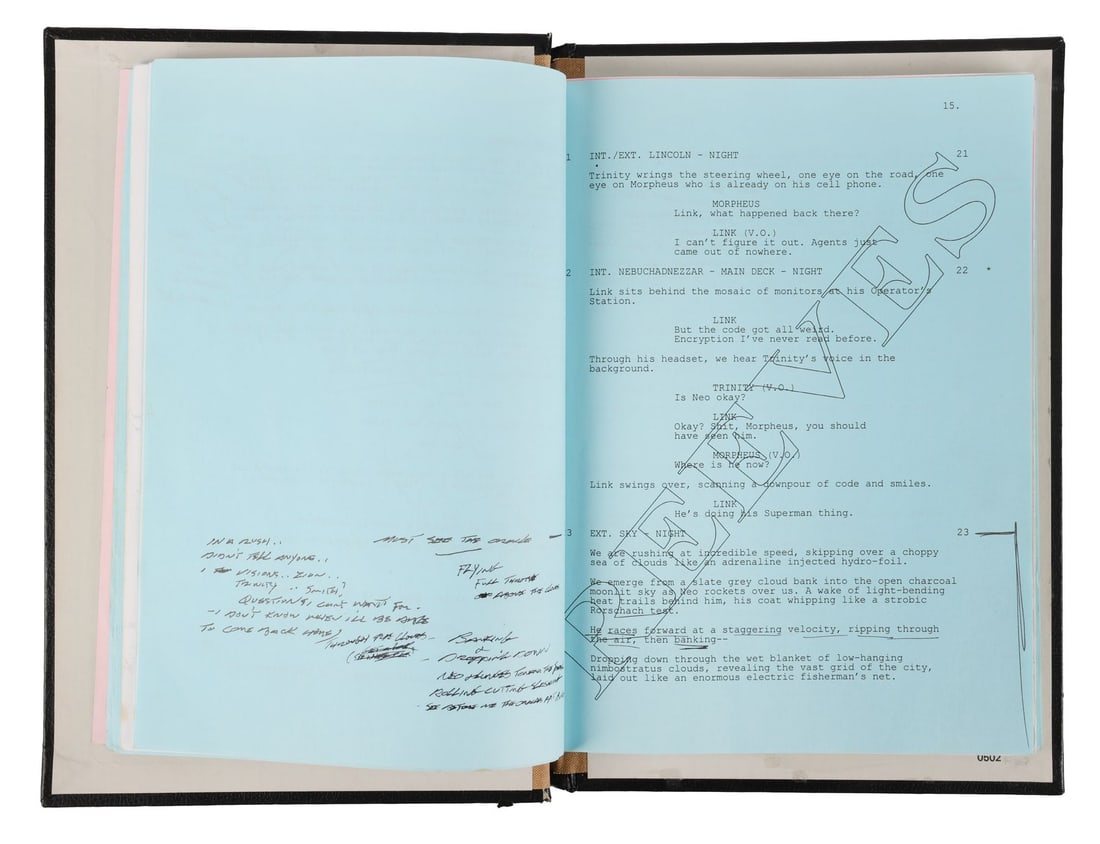 IN A RUSH..
DIDN'T TELL ANYONE..
VISIONS.. ZION..
TRINITY .. SMITH?
QUESTIONS, CAN'T WAIT FOR.
- I DON'T KNOW WHEN I'LL BE ABLE
TO COME BACK HERE
MUST SEE THE ORACLE
FLYING
FULL THROTTLE
ABOVE THE
THROUGH THE CLOUDS -
- BANKING
- DROPPING DOWN
NEO
ROLLING CUTTING
15.
1 INT./EXT. LINCOLN - NIGHT 21
Trinity wrings the steering wheel, one eye on the road, one
eye on Morpheus who is already on his cell phone.
MORPHEUS
Link, what happened back there?
LINK (V.O.)
I can't figure it out. Agents just
came out of nowhere.
2 INT. NEBUCHADNEZZAR - MAIN DECK - NIGHT 22 *
Link sits behind the mosaic of monitors at his Operator's
Station.
LINK
But the code got all weird.
Encryption I've never read before.
Through his headset, we hear Trinity's voice in the
background.
TRINITY (V.O.)
Is Neo okay?
LINK
Okay? Shit, Morpheus, you should
have seen him.
MORPHEUS (V.O.)
Where is he now?
Link swings over, scanning a downpour of code and smiles.
LINK
He's doing his Superman thing.
3 EXT. SKY - NIGHT 23
We are rushing at incredible speed, skipping over a choppy
sea of clouds like an adrenaline injected hydro-foil.
We emerge from a slate grey cloud bank into the open charcoal
moonlit sky as Neo rockets over us. A wake of light-bending
heat trails behind him, his coat whipping like a strobic
Rorschach test.
He races forward at a staggering velocity, ripping through
the air, then banking--
Dropping down through the wet blanket of low-hanging
nimbostratus clouds, revealing the vast grid of the city,
laid out like an enormous electric fisherman's net.
REEVES
0502